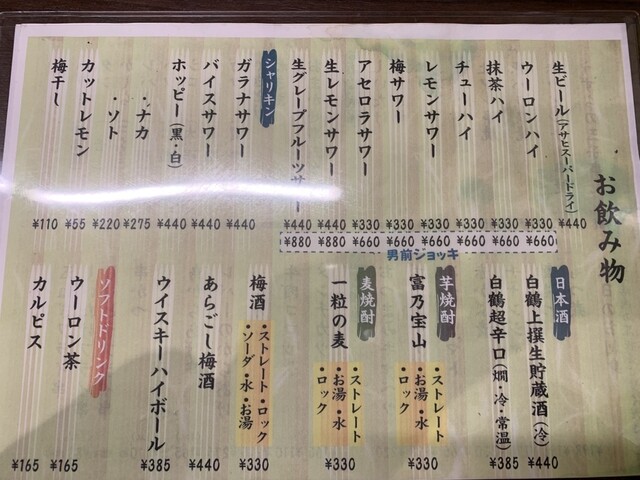 お飲み物
生ビール(アサヒスーパードライ) ¥440
ウーロンハイ ¥330 ¥660
抹茶ハイ ¥330 ¥660
チューハイ ¥330 ¥660
レモンサワー ¥330 ¥660
梅サワー ¥330 ¥660
アセロラサワー ¥330 ¥660
生レモンサワー ¥440 ¥880
生グレープフルーツサワー ¥440 ¥880
男前ジョッキ
シャリキン
ガラナサワー ¥440
バイスサワー ¥440
ホッピー(黒・白) ¥440
・ナカ ¥275
・ソト ¥220
カットレモン ¥55
梅干し ¥110
日本酒
白鶴上撰生貯蔵酒(冷) ¥440
白鶴超辛口(燗・冷・常温) ¥385
芋焼酎
富乃宝山 ¥330
・ストレート
・お湯・水
・ロック
麦焼酎
一粒の麦 ¥330
・ストレート
・お湯・水
・ロック
梅酒 ¥330
・ストレート・ロック
・ソーダ・水・お湯
あらごし梅酒 ¥440
ウイスキーハイボール ¥385
ソフトドリンク
ウーロン茶 ¥165
カルピス ¥165